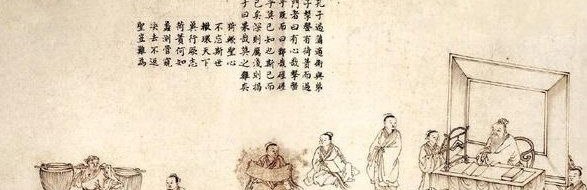 孔子過蒲適衛與弟
子擊磬有荷蕢而過
門者曰有心哉擊磬
乎既而曰鄙哉硜硜
乎莫己知也斯已而
已矣深則厲淺則揭
子曰果哉莫之難矣
聖心
不忘斯世
轍環天下
莫行厥志
荷蕢何知
蠡測管窺
決去不返
聖豈難為